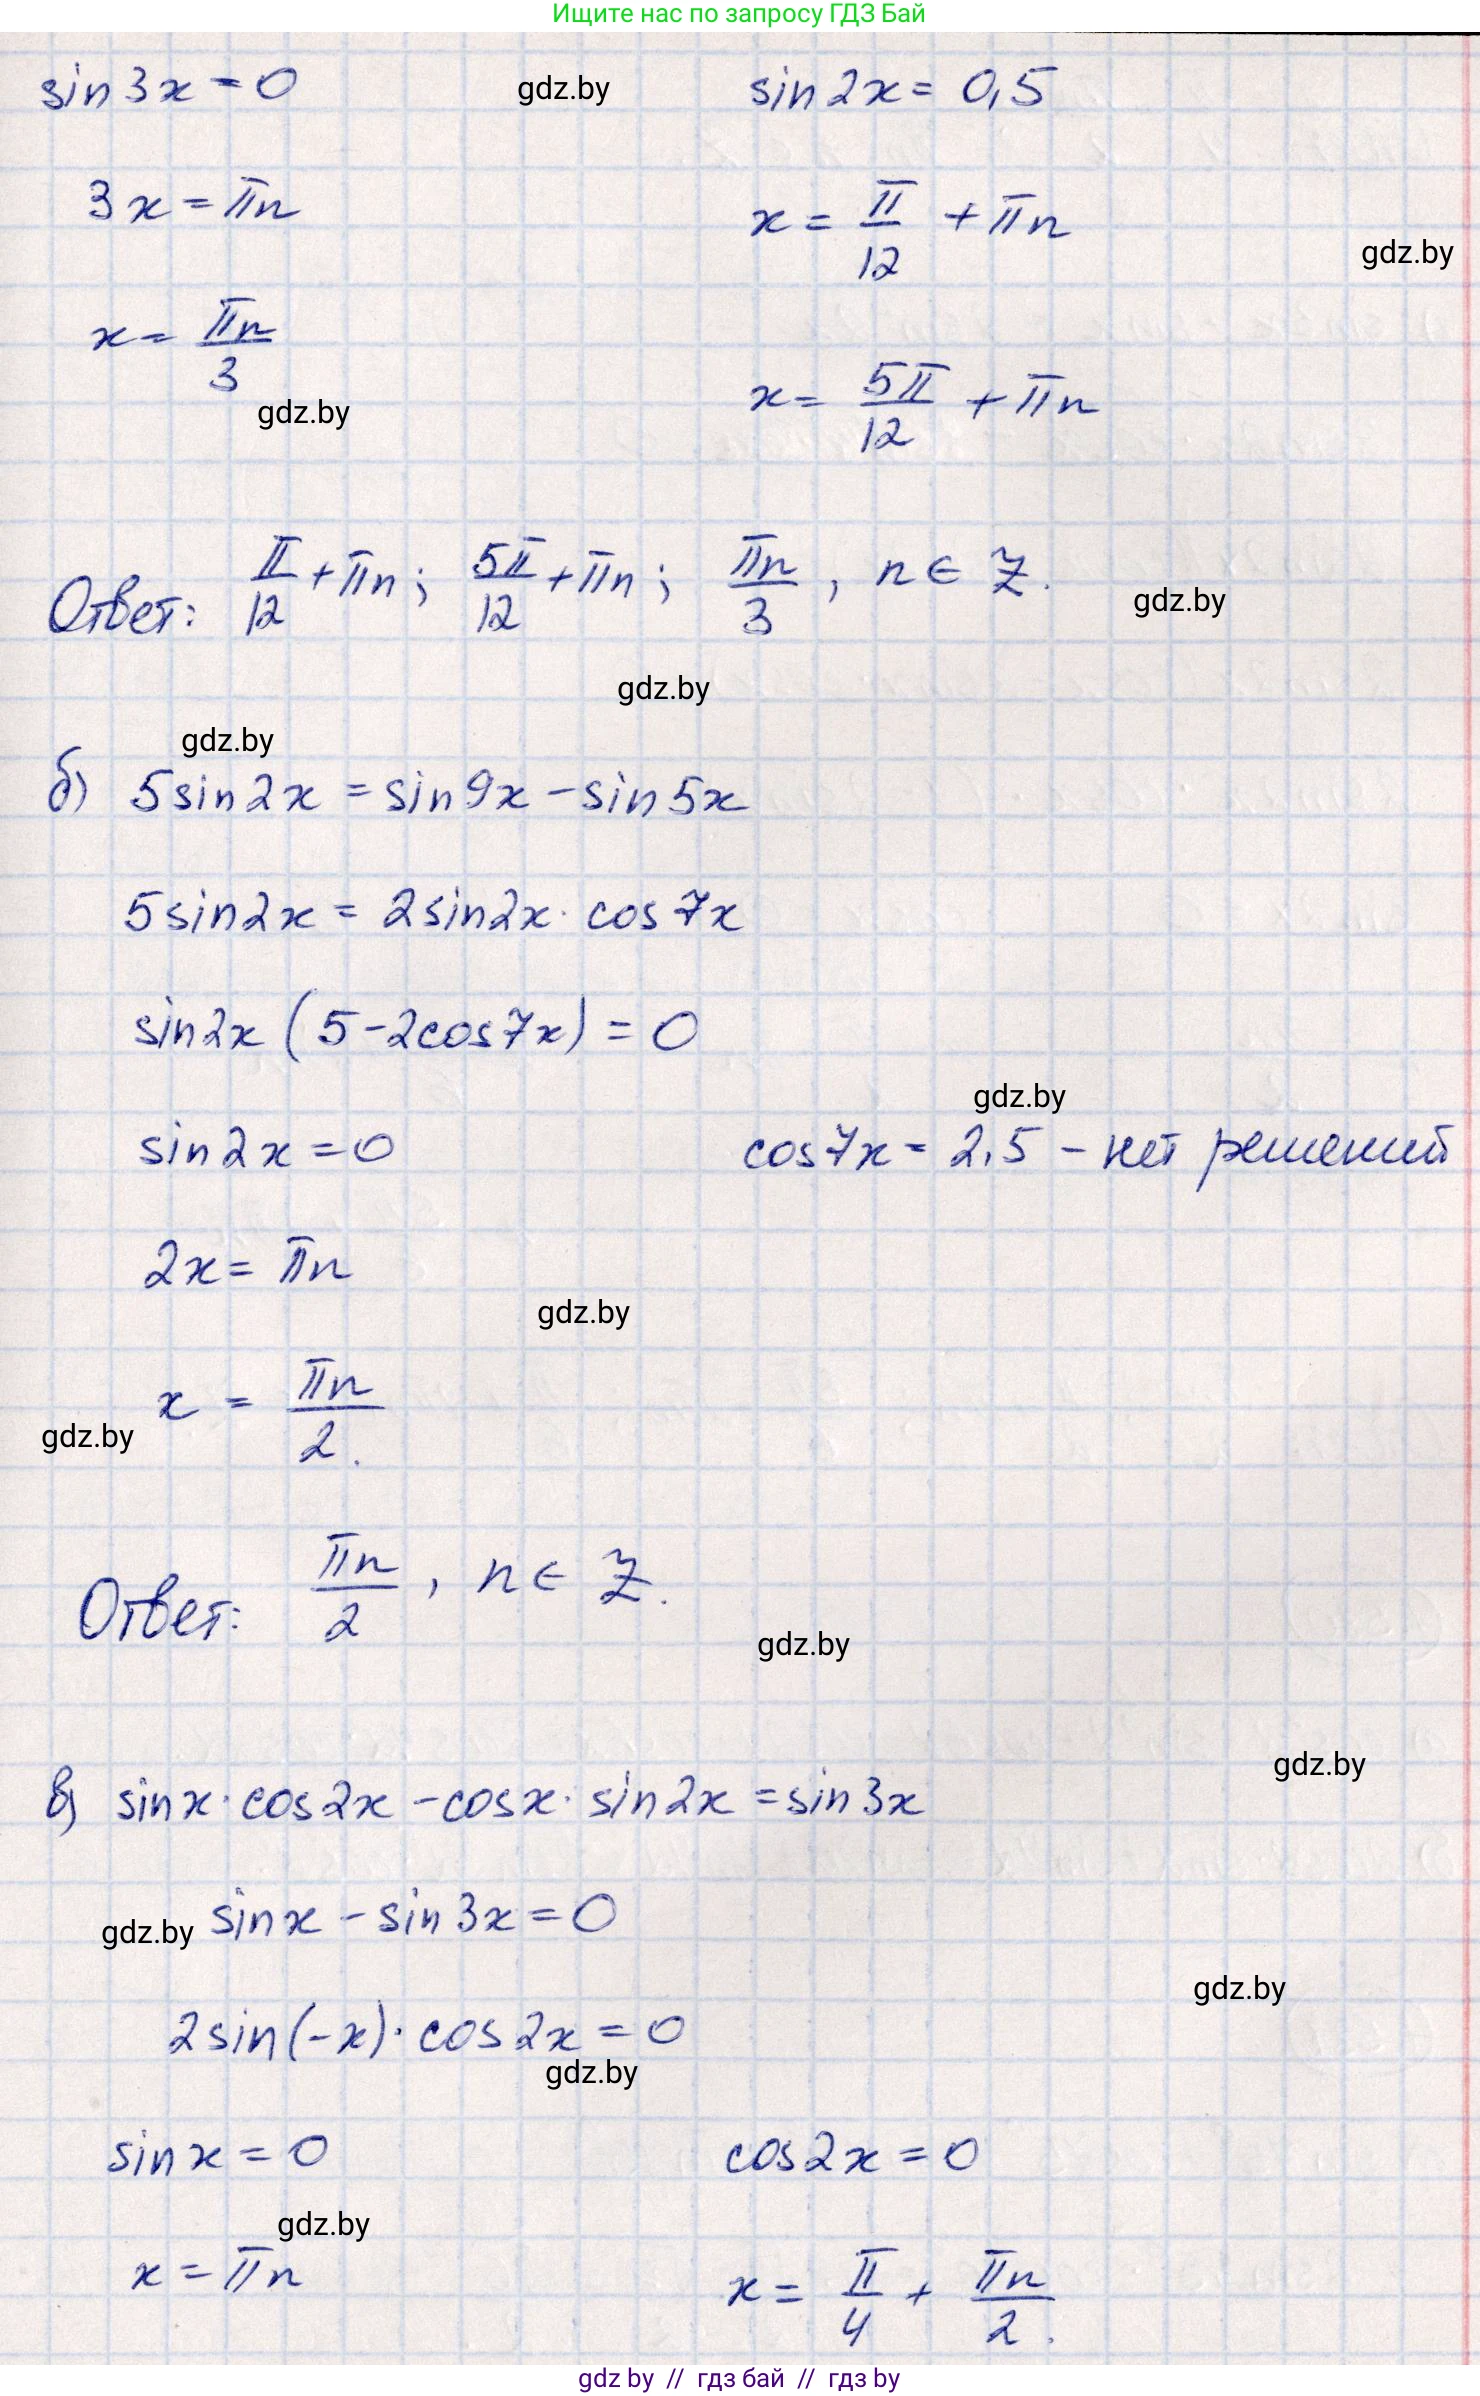 Ищите нас по запросу ГДЗ Бай
sin3x = 0
gdz.by
sin2x = 0,5
3x = πn
x = π/12 + πn
gdz.by
x = πn/3
gdz.by
x = 5π/12 + πn
Ответ: π/12 + πn; 5π/12 + πn; πn/3, n ∈ Z.
gdz.by
gdz.by
gdz.by
б) 5sin2x = sin9x - sin5x
5sin2x = 2sin2x · cos7x
sin2x (5 - 2cos7x) = 0
gdz.by
sin2x = 0
cos7x = 2,5 - нет решений
2x = πn
gdz.by
x = πn/2.
gdz.by
Ответ: πn/2, n ∈ Z.
gdz.by
gdz.by
в) sinx · cos2x - cosx · sin2x = sin3x
gdz.by
sinx - sin3x = 0
gdz.by
2sin(-x) · cos2x = 0
gdz.by
sinx = 0
cos2x = 0
gdz.by
x = πn
x = π/4 + πn/2.
gdz by // гдз бай // гдз by